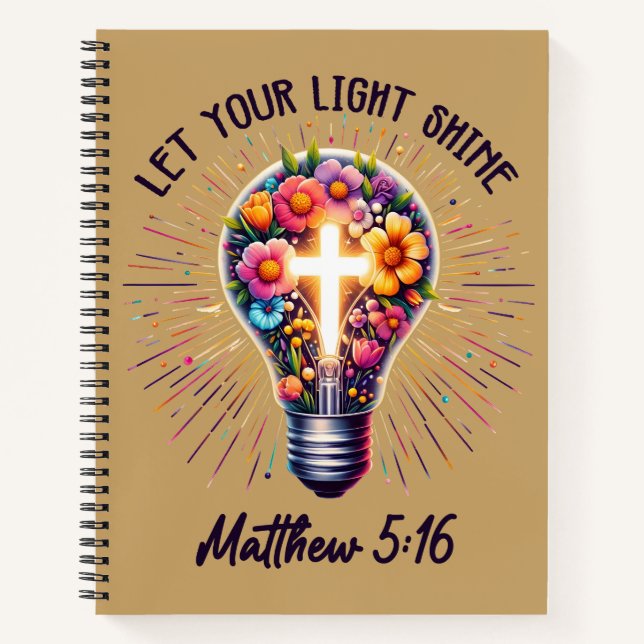 LET YOUR LIGHT SHINE
Matthew 5:16